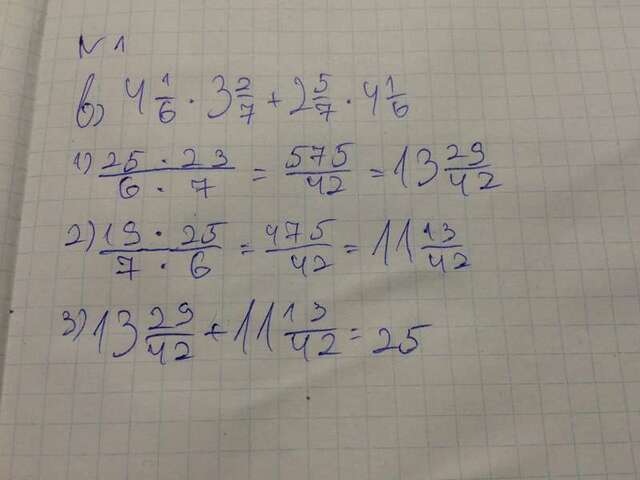 N 1
б) 4 1/6 · 3 2/7 + 2 5/7 · 4 1/6
1) 25 · 23 / 6 · 7 = 575/42 = 13 29/42
2) 19 · 25 / 7 · 6 = 475/42 = 11 13/42
3) 13 29/42 + 11 13/42 = 25